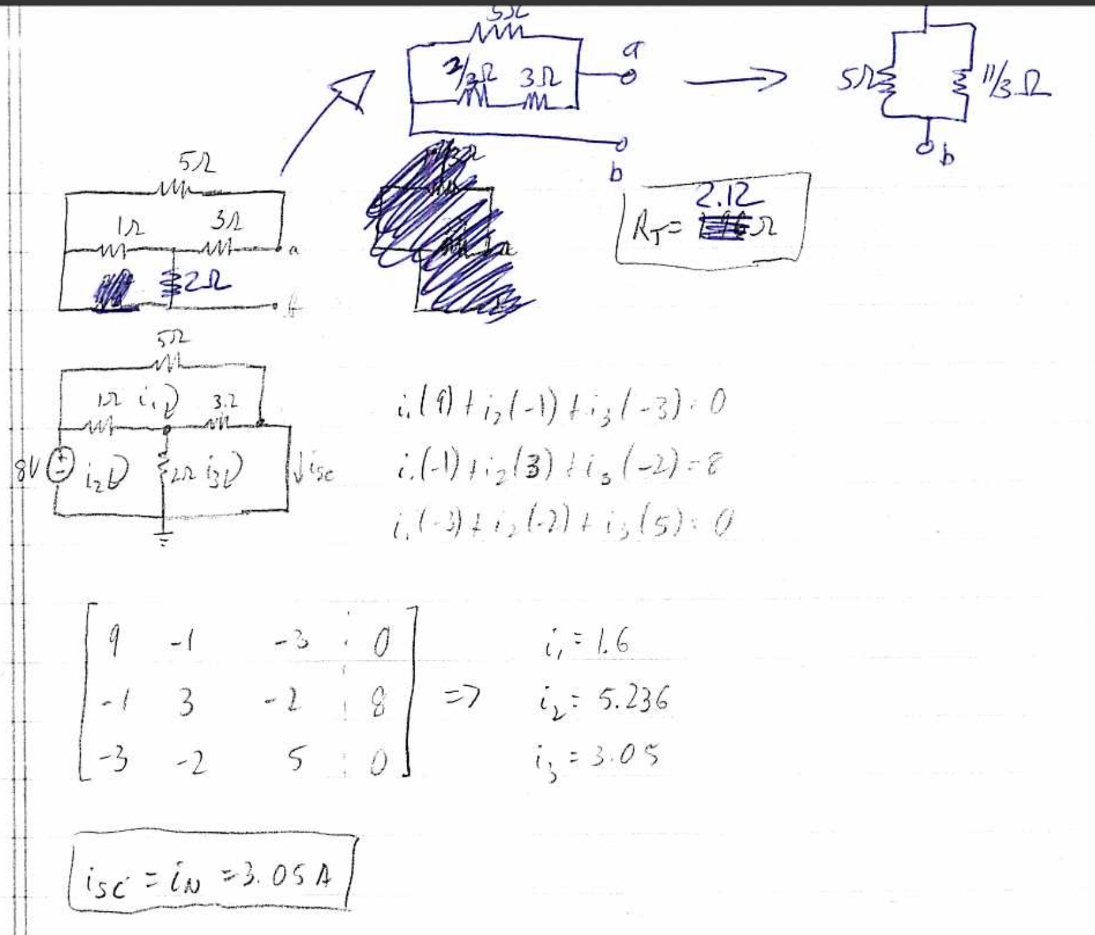 5Ω
2/3Ω 3Ω
a
b
5Ω 11/3Ω
b
5Ω
1Ω 3Ω
a
2Ω
R_T = 2.12 Ω
5Ω
1Ω i₁ 3Ω
8V i₂ 2Ω i₃ ↓i_sc
i₁(9) + i₂(-1) + i₃(-3) = 0
i₁(-1) + i₂(3) + i₃(-2) = 8
i₁(-3) + i₂(-2) + i₃(5) = 0
9 -1 -3 0
-1 3 -2 8
-3 -2 5 0
=>
i₁ = 1.6
i₂ = 5.236
i₃ = 3.05
i_SC = i_N = 3.05 A